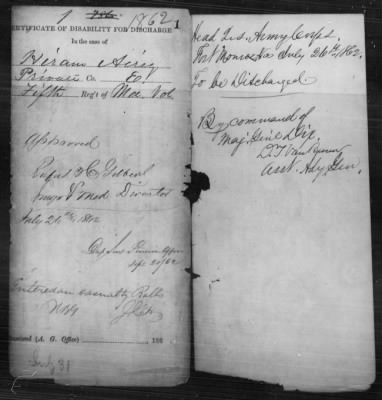 1 1862 1
CERTIFICATE OF DISABILITY FOR DISCHARGE
In the case of
Hiram
Private Co.
Fifth Reg't of Vol
Approved
Surg & Med Director
July 26th, 1862
Sept 20/62
Entered on Casualty Rolls
(A. G. Office) 186
July 31
Head Qrs. Army Corps.
Fort Monroe Va July 26th, 1862.
To be Discharged
By command of
Maj. Genl Dix.
D. T. Van Buren
Asst. Adj. Gen.